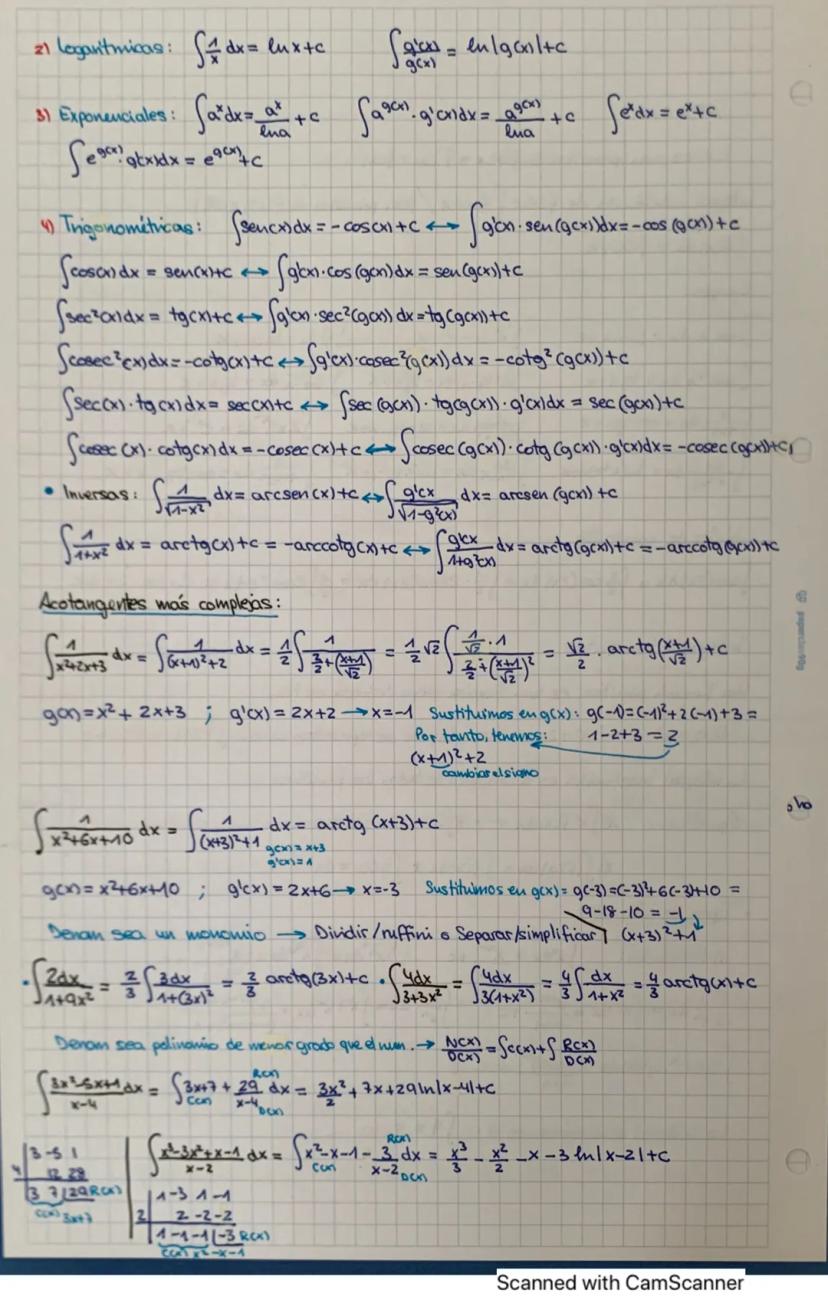 2) Logarítmicas: ∫ 1/x dx = ln x + c   ∫ g'(x)/g(x) = ln|g(x)| + c
3) Exponenciales: ∫ a^x dx = a^x/ln a + c   ∫ a^g(x) · g'(x) dx = a^g(x)/ln a + c   ∫ e^x dx = e^x + c
∫ e^g(x) · g'(x) dx = e^g(x) + c
4) Trigonométricas: ∫ sen(x) dx = -cos(x) + c ↔ ∫ g'(x) · sen(g(x)) dx = -cos(g(x)) + c
∫ cos(x) dx = sen(x) + c ↔ ∫ g'(x) · cos(g(x)) dx = sen(g(x)) + c
∫ sec²(x) dx = tg(x) + c ↔ ∫ g'(x) · sec²(g(x)) dx = tg(g(x)) + c
∫ cosec²(x) dx = -cotg(x) + c ↔ ∫ g'(x) · cosec²(g(x)) dx = -cotg²(g(x)) + c
∫ sec(x) · tg(x) dx = sec(x) + c ↔ ∫ sec(g(x)) · tg(g(x)) · g'(x) dx = sec(g(x)) + c
∫ cosec(x) · cotg(x) dx = -cosec(x) + c ↔ ∫ cosec(g(x)) · cotg(g(x)) · g'(x) dx = -cosec(g(x)) + c
• Inversas: ∫ 1/√(1-x²) dx = arcsen(x) + c ↔ ∫ g'(x)/√(1-g²(x)) dx = arcsen(g(x)) + c
∫ 1/(1+x²) dx = arctg(x) + c = -arccotg(x) + c ↔ ∫ g'(x)/(1+g²(x)) dx = arctg(g(x)) + c = -arccotg(g(x)) + c
Acotangentes más complejas:
∫ 1/(x²+2x+3) dx = ∫ 1/((x+1)²+2) dx = 1/2 ∫ 1/(2/2+((x+1)/√2)) = 1/2 √2 ∫ (1/√2 · 1)/(2/2+((x+1)/√2)²) = √2/2 · arctg((x+1)/√2) + c
g(x) = x² + 2x + 3 ; g'(x) = 2x + 2 → x = -1 Sustituimos en g(x): g(-1) = (-1)² + 2(-1) + 3 =
Por tanto, tenemos: 1 - 2 + 3 = 2
(x+1)² + 2
cambiar el signo
∫ 1/(x²+6x+10) dx = ∫ 1/((x+3)²+1) dx = arctg(x+3) + c
g(x) = x+3
g'(x) = 1
g(x) = x²+6x+10 ; g'(x) = 2x+6 → x = -3 Sustituimos en g(x) = g(-3) = (-3)²+6(-3)+10 =
9-18-10 = -1
Denom sea un monomio → Dividir/ruffini o Separar/simplificar (x+3)²+1
• ∫ 2dx/(1+9x²) = 2/3 ∫ 3dx/(1+(3x)²) = 2/3 arctg(3x) + c • ∫ 4dx/(3+3x²) = ∫ 4dx/(3(1+x²)) = 4/3 ∫ dx/(1+x²) = 4/3 arctg(x) + c
Denom sea polinomio de menor grado que el num. → N(x)/D(x) = ∫ C(x) + ∫ R(x)/D(x)
∫ (3x²-5x+1)/(x-4) dx = ∫ 3x+7 + 29/(x-4) dx = 3x²/2 + 7x + 29 ln|x-4| + c
C(x) R(x) D(x)
∫ (x³-3x²+x-1)/(x-2) dx = ∫ x²-x-1 - 3/(x-2) dx = x³/3 - x²/2 - x - 3 ln|x-2| + c
C(x) R(x) D(x)
3 -5 1
4 12 28
3 7 |29 R(x)
C(x) 3x+7
1 -3 1 -1
2 2 -2 -2
1 -1 -1 |-3 R(x)
C(x) x²-x-1
Scanned with CamScanner